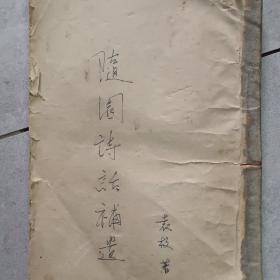 隨园詩話補遺
袁枚著